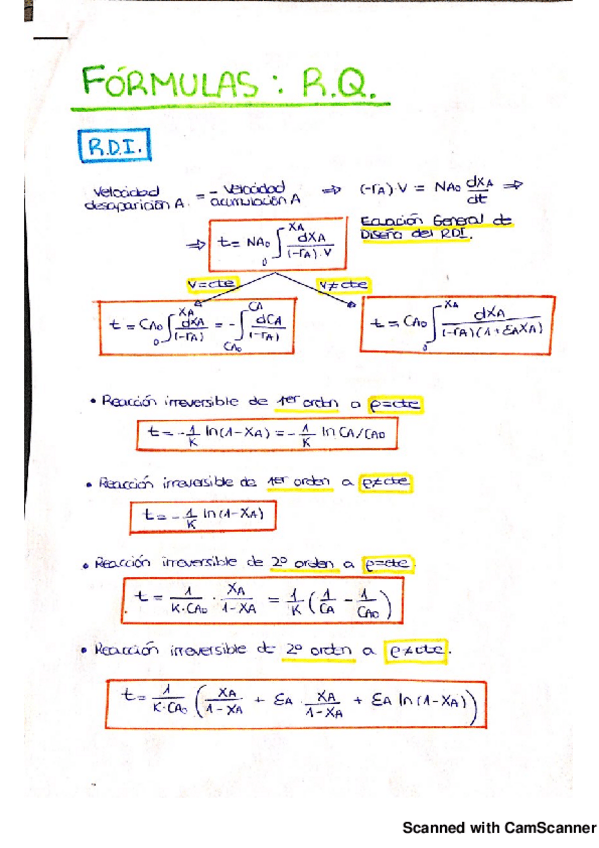 FÓRMULAS : R.Q.
R.D.I.
Velocidad desaparición A = - Velocidad acumulación A ⇒ (-rA)·V = NA0 dXA/dt ⇒
⇒ t = NA0 ∫0^XA dXA/((-rA)·V)
Ecuación General de
Diseño del R.D.I.
V=cte V≠cte
t = CA0 ∫0^XA dXA/(-rA) = - ∫CA0^CA dCA/(-rA)
t = CA0 ∫0^XA dXA/((-rA)(1+εAXA))
• Reacción irreversible de 1er orden a ρ=cte
t = - 1/K ln(1-XA) = - 1/K ln CA/CA0
• Reacción irreversible de 1er orden a ρ≠cte
t = - 1/K ln(1-XA)
• Reacción irreversible de 2º orden a ρ=cte.
t = 1/(K·CA0) · XA/(1-XA) = 1/K (1/CA - 1/CA0)
• Reacción irreversible de 2º orden a ρ≠cte.
t = 1/(K·CA0) (XA/(1-XA) + εA · XA/(1-XA) + εA ln(1-XA))
Scanned with CamScanner